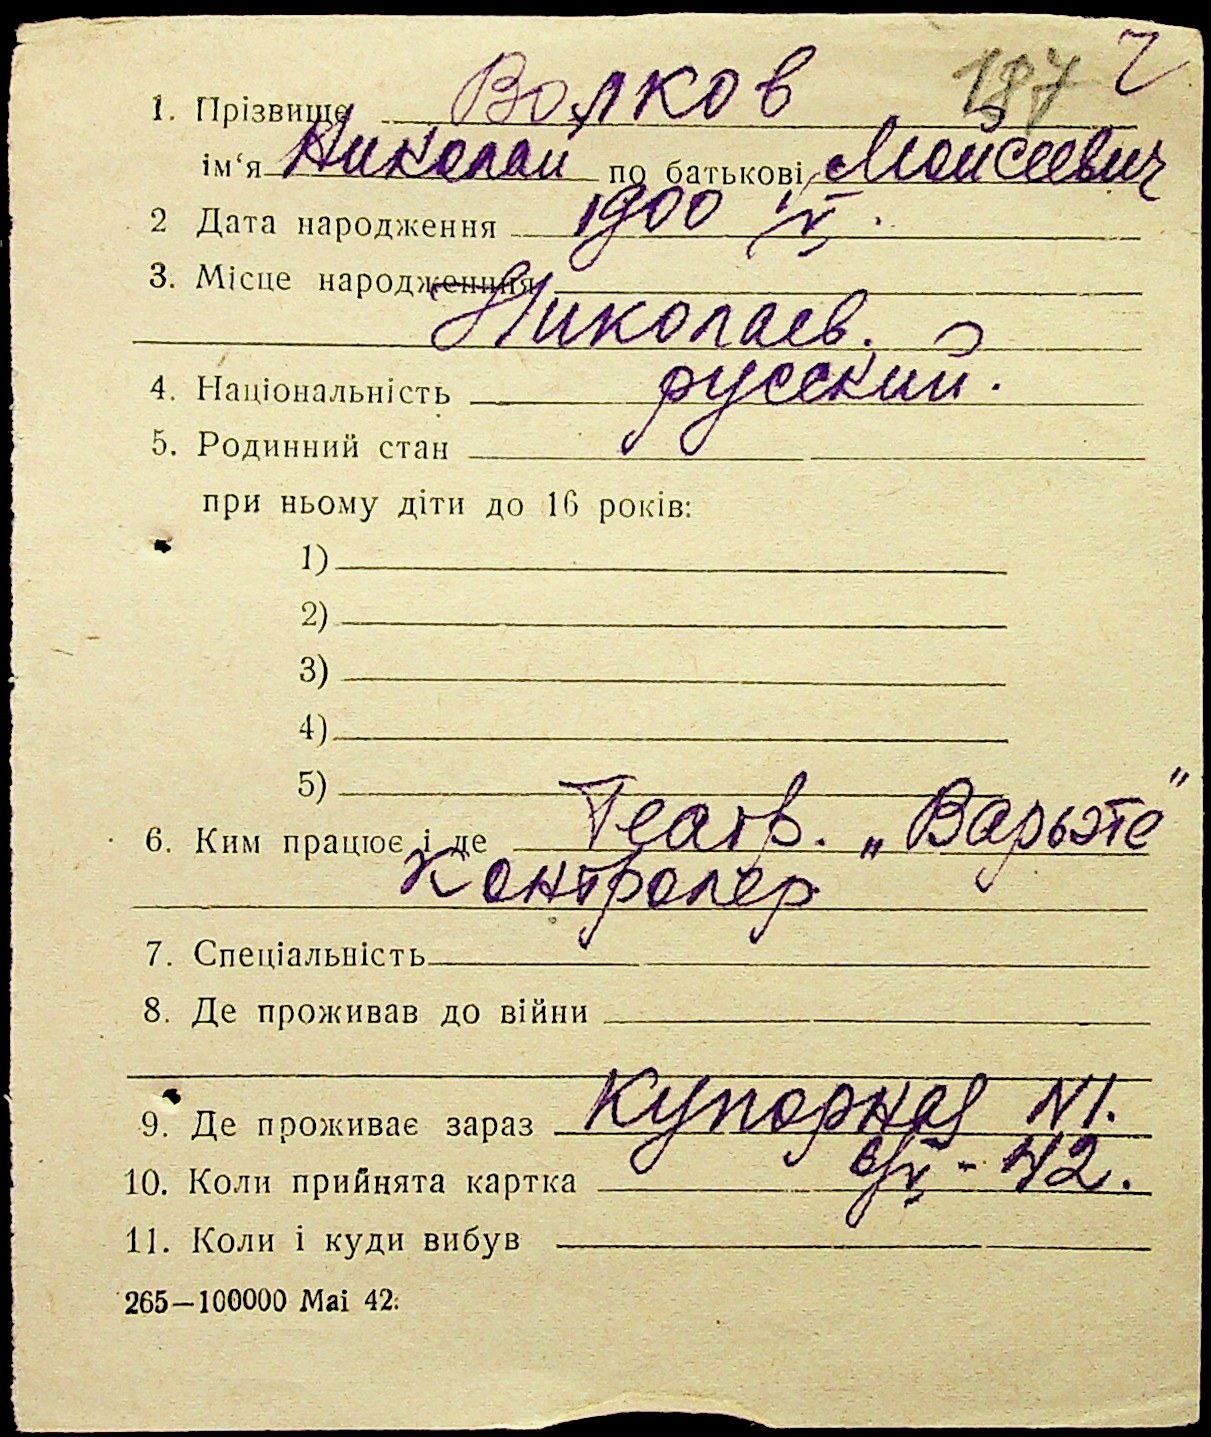 187 2
1. Прізвище Волков
ім‘я Николай по батькові Моисеевич
2 Дата народження 1900 1/V.
3. Місце народження
Николаев.
4. Національність русский.
5. Родинний стан
при ньому діти до 16 років:
1)
2)
3)
4)
5)
6. Ким працює і де Театр. „Варьэте"
Контролер
7. Спеціальність
8. Де проживав до війни
9. Де проживає зараз Купорная N1.
10. Коли прийнята картка 6/V-42.
11. Коли і куди вибув
265—100000 Mai 42.